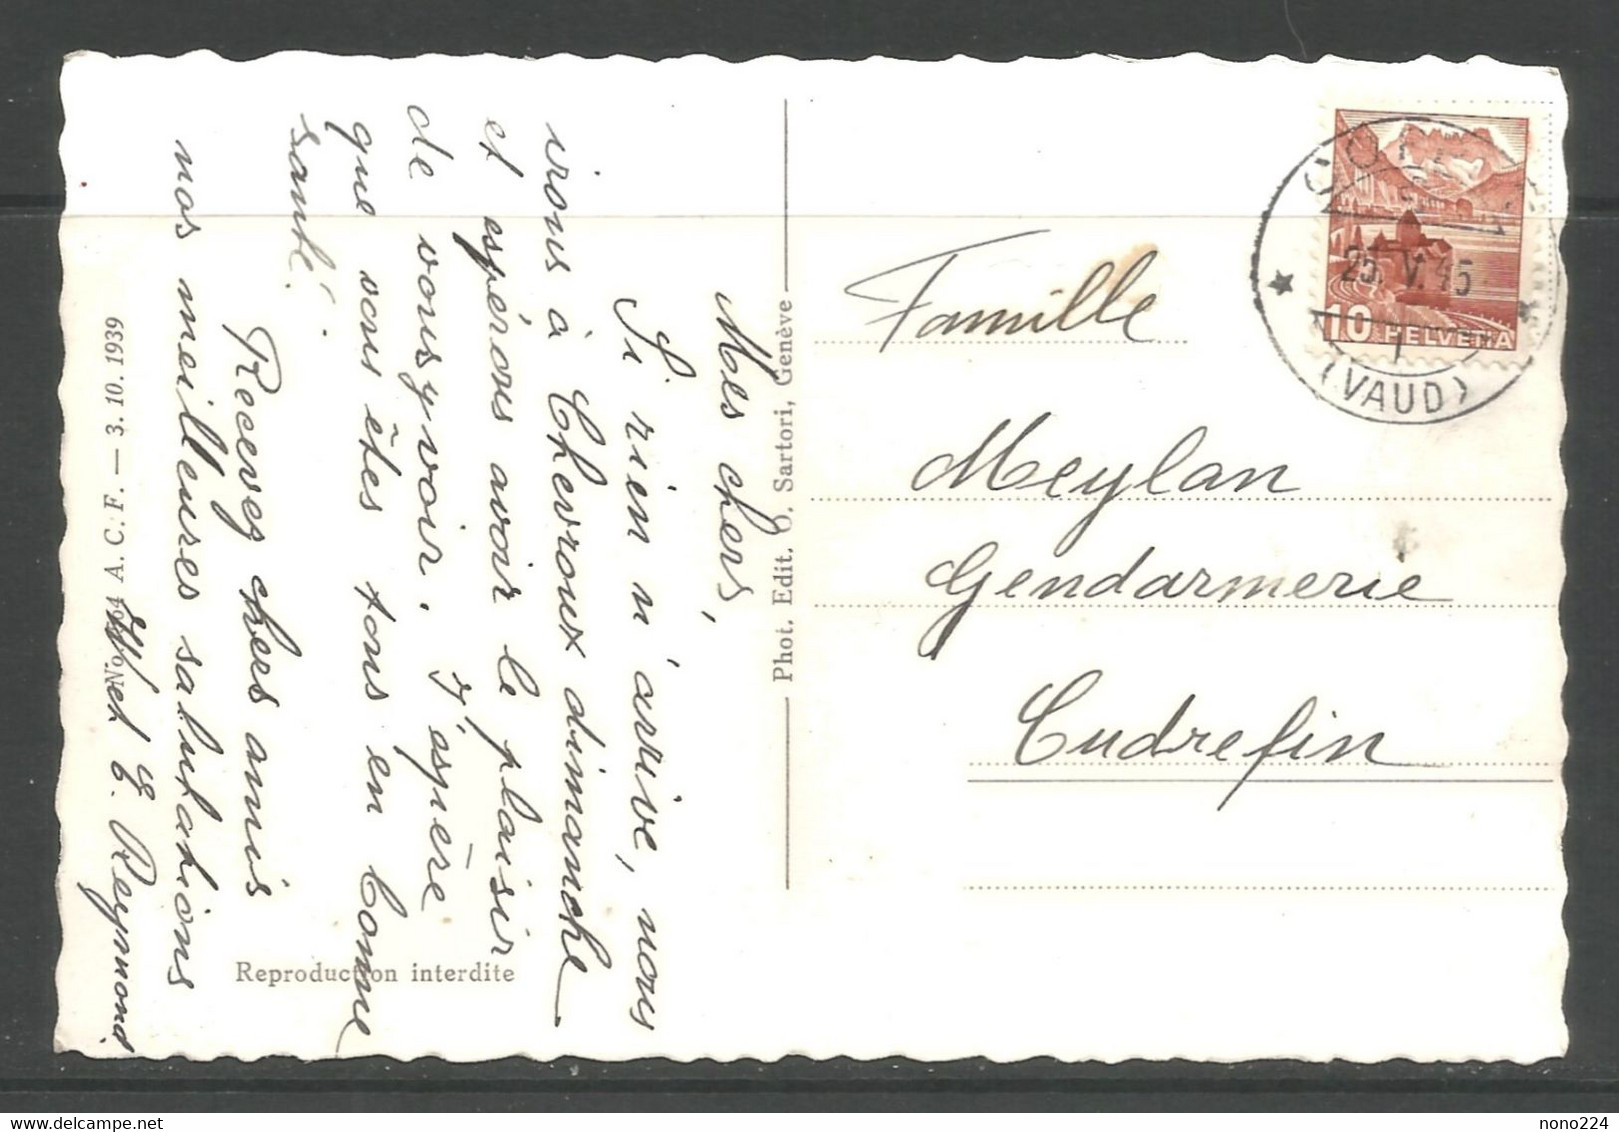 Mes chers,
Si rien n'arrive, nous
irons à Chevroux dimanche
et espérons avoir le plaisir
de vous y voir. J'espère
que vous êtes tous en bonne
santé.
Recevez chers amis
nos meilleures salutations
et E. Reymond.
No A. C. F. — 3. 10. 1939
Reproduction interdite
Phot. Edit. O. Sartori, Genève
Famille
Meylan
Gendarmerie
Cudrefin
25. V. 45
(VAUD)
10 HELVETIA
nono224